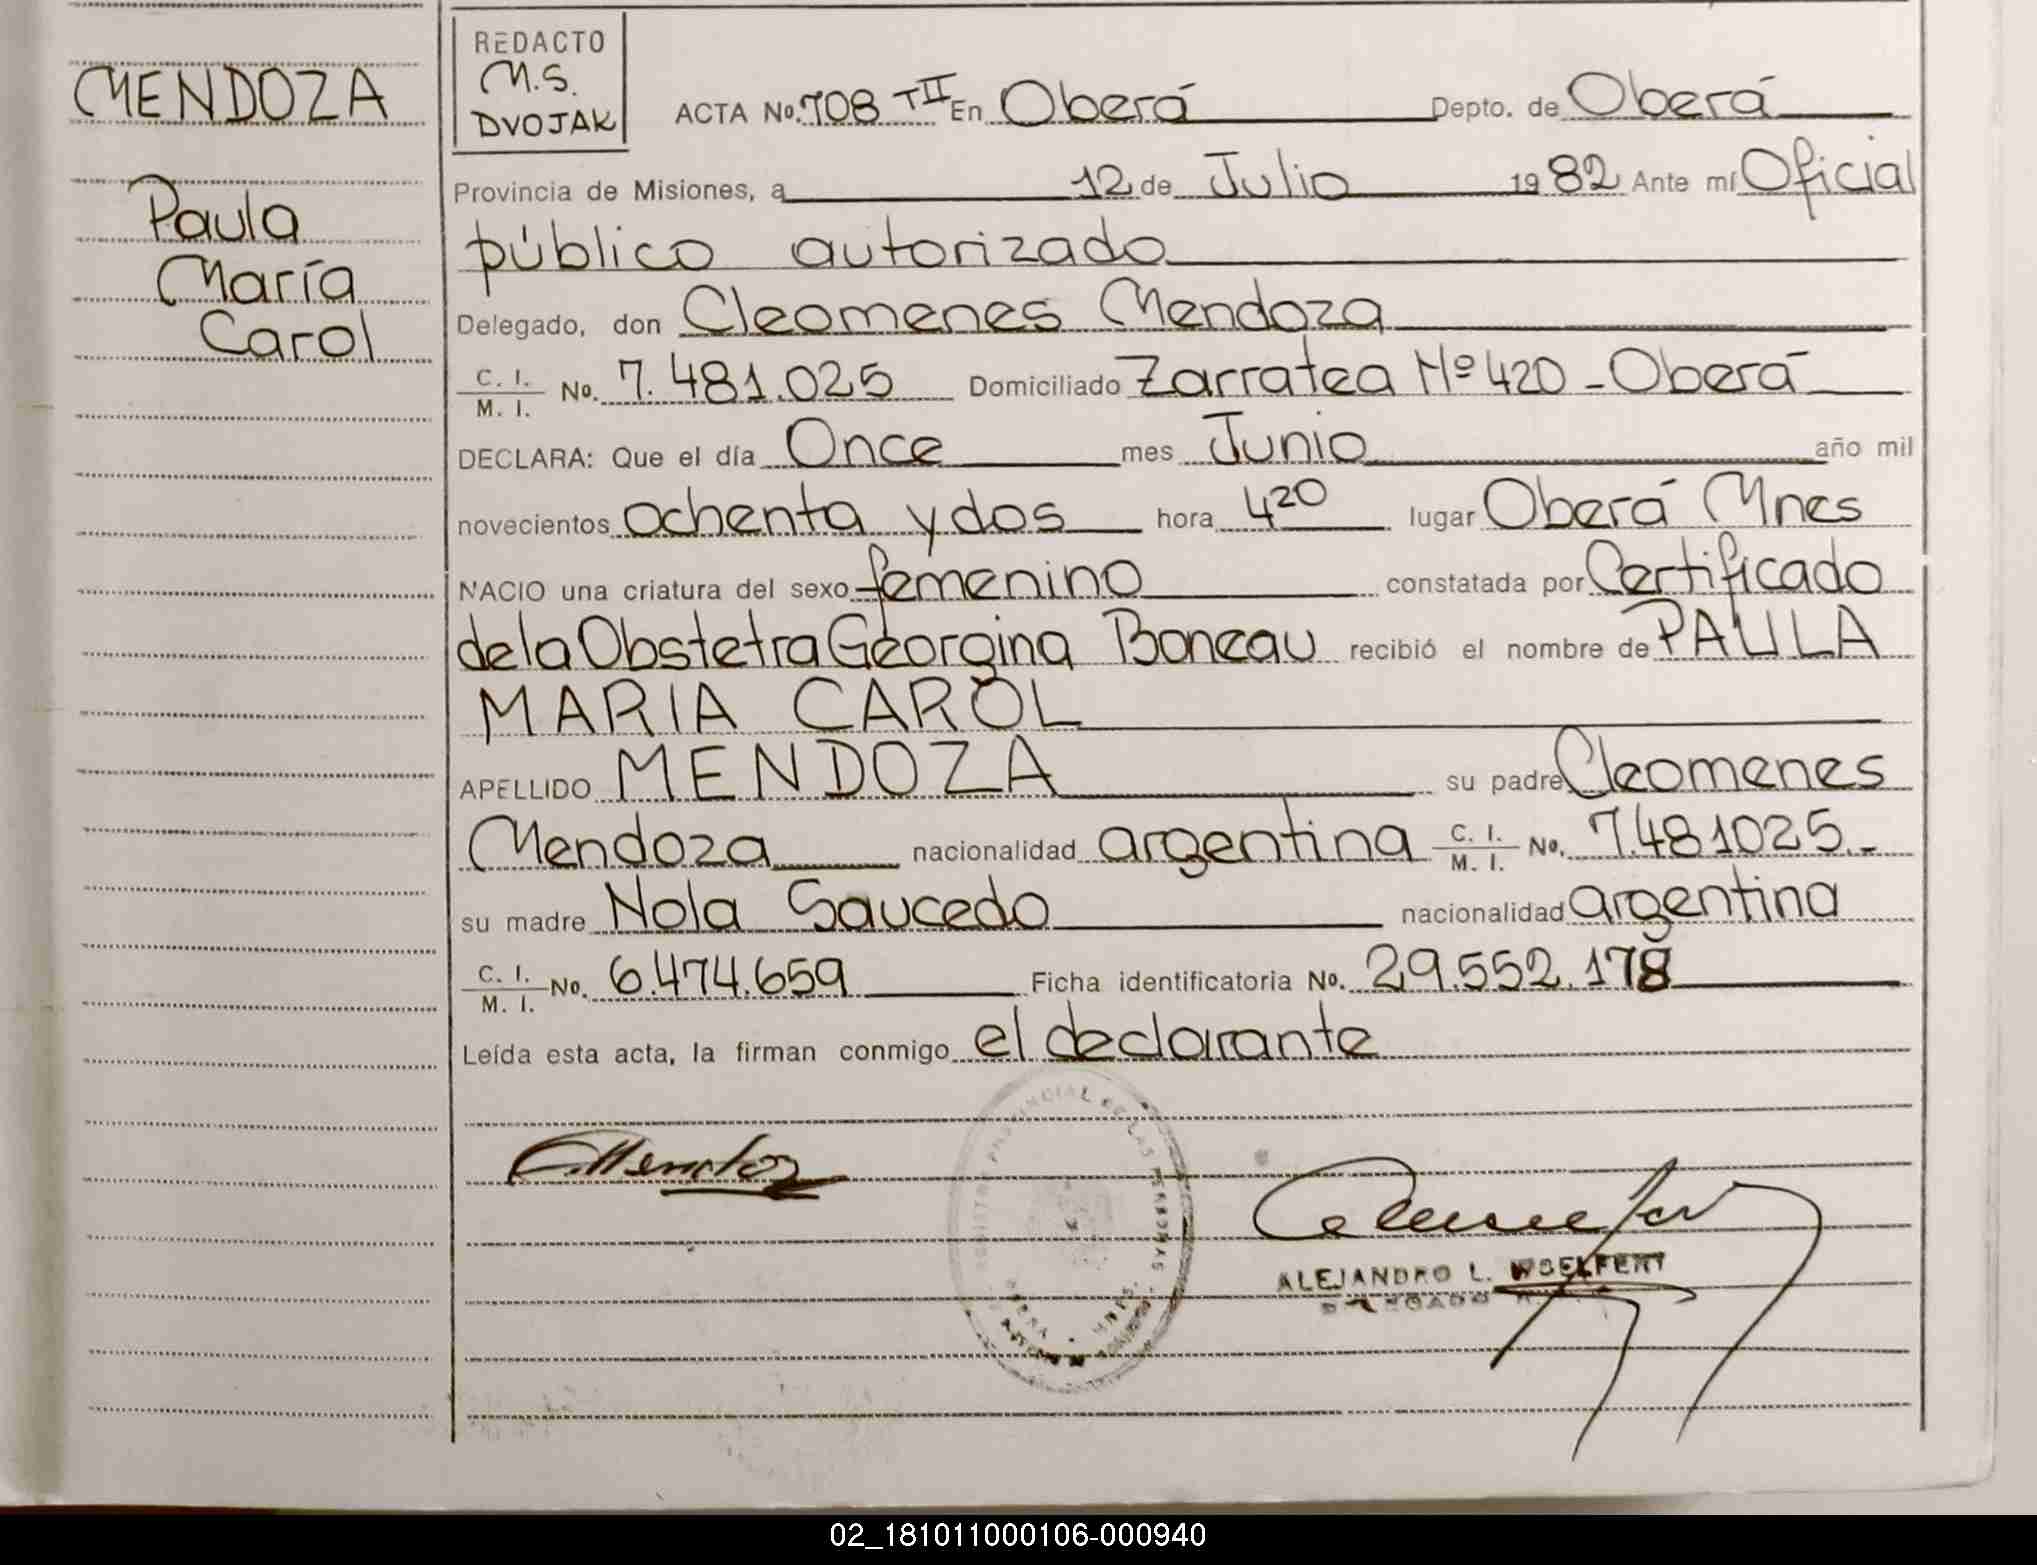 MENDOZA
Paula
María
Carol
REDACTO
M.S.
DVOJAK
ACTA No. 708 TII En Oberá Depto. de Oberá
Provincia de Misiones, a 12 de Julio 1982 Ante mí Oficial
público autorizado
Delegado, don Cleomenes Mendoza
C. I. / M. I. No. 7.481.025 Domiciliado Zarratea Nº 420 - Oberá
DECLARA: Que el día Once mes Junio año mil
novecientos ochenta y dos hora 4 20 lugar Oberá Mnes
NACIO una criatura del sexo femenino constatada por Certificado
de la Obstetra Georgina Boneau recibió el nombre de PAULA
MARIA CAROL
APELLIDO MENDOZA su padre Cleomenes
Mendoza nacionalidad argentina C. I. / M. I. No. 7.481025.-
su madre Nola Saucedo nacionalidad argentina
C. I. / M. I. No. 6.474.659 Ficha identificatoria No. 29.552.178
Leída esta acta, la firman conmigo el declarante
CMendoza
PROVINCIAL DE LAS PERSONAS
ALEJANDRO L. WOELFERT
DELEGADO
02_181011000106-000940